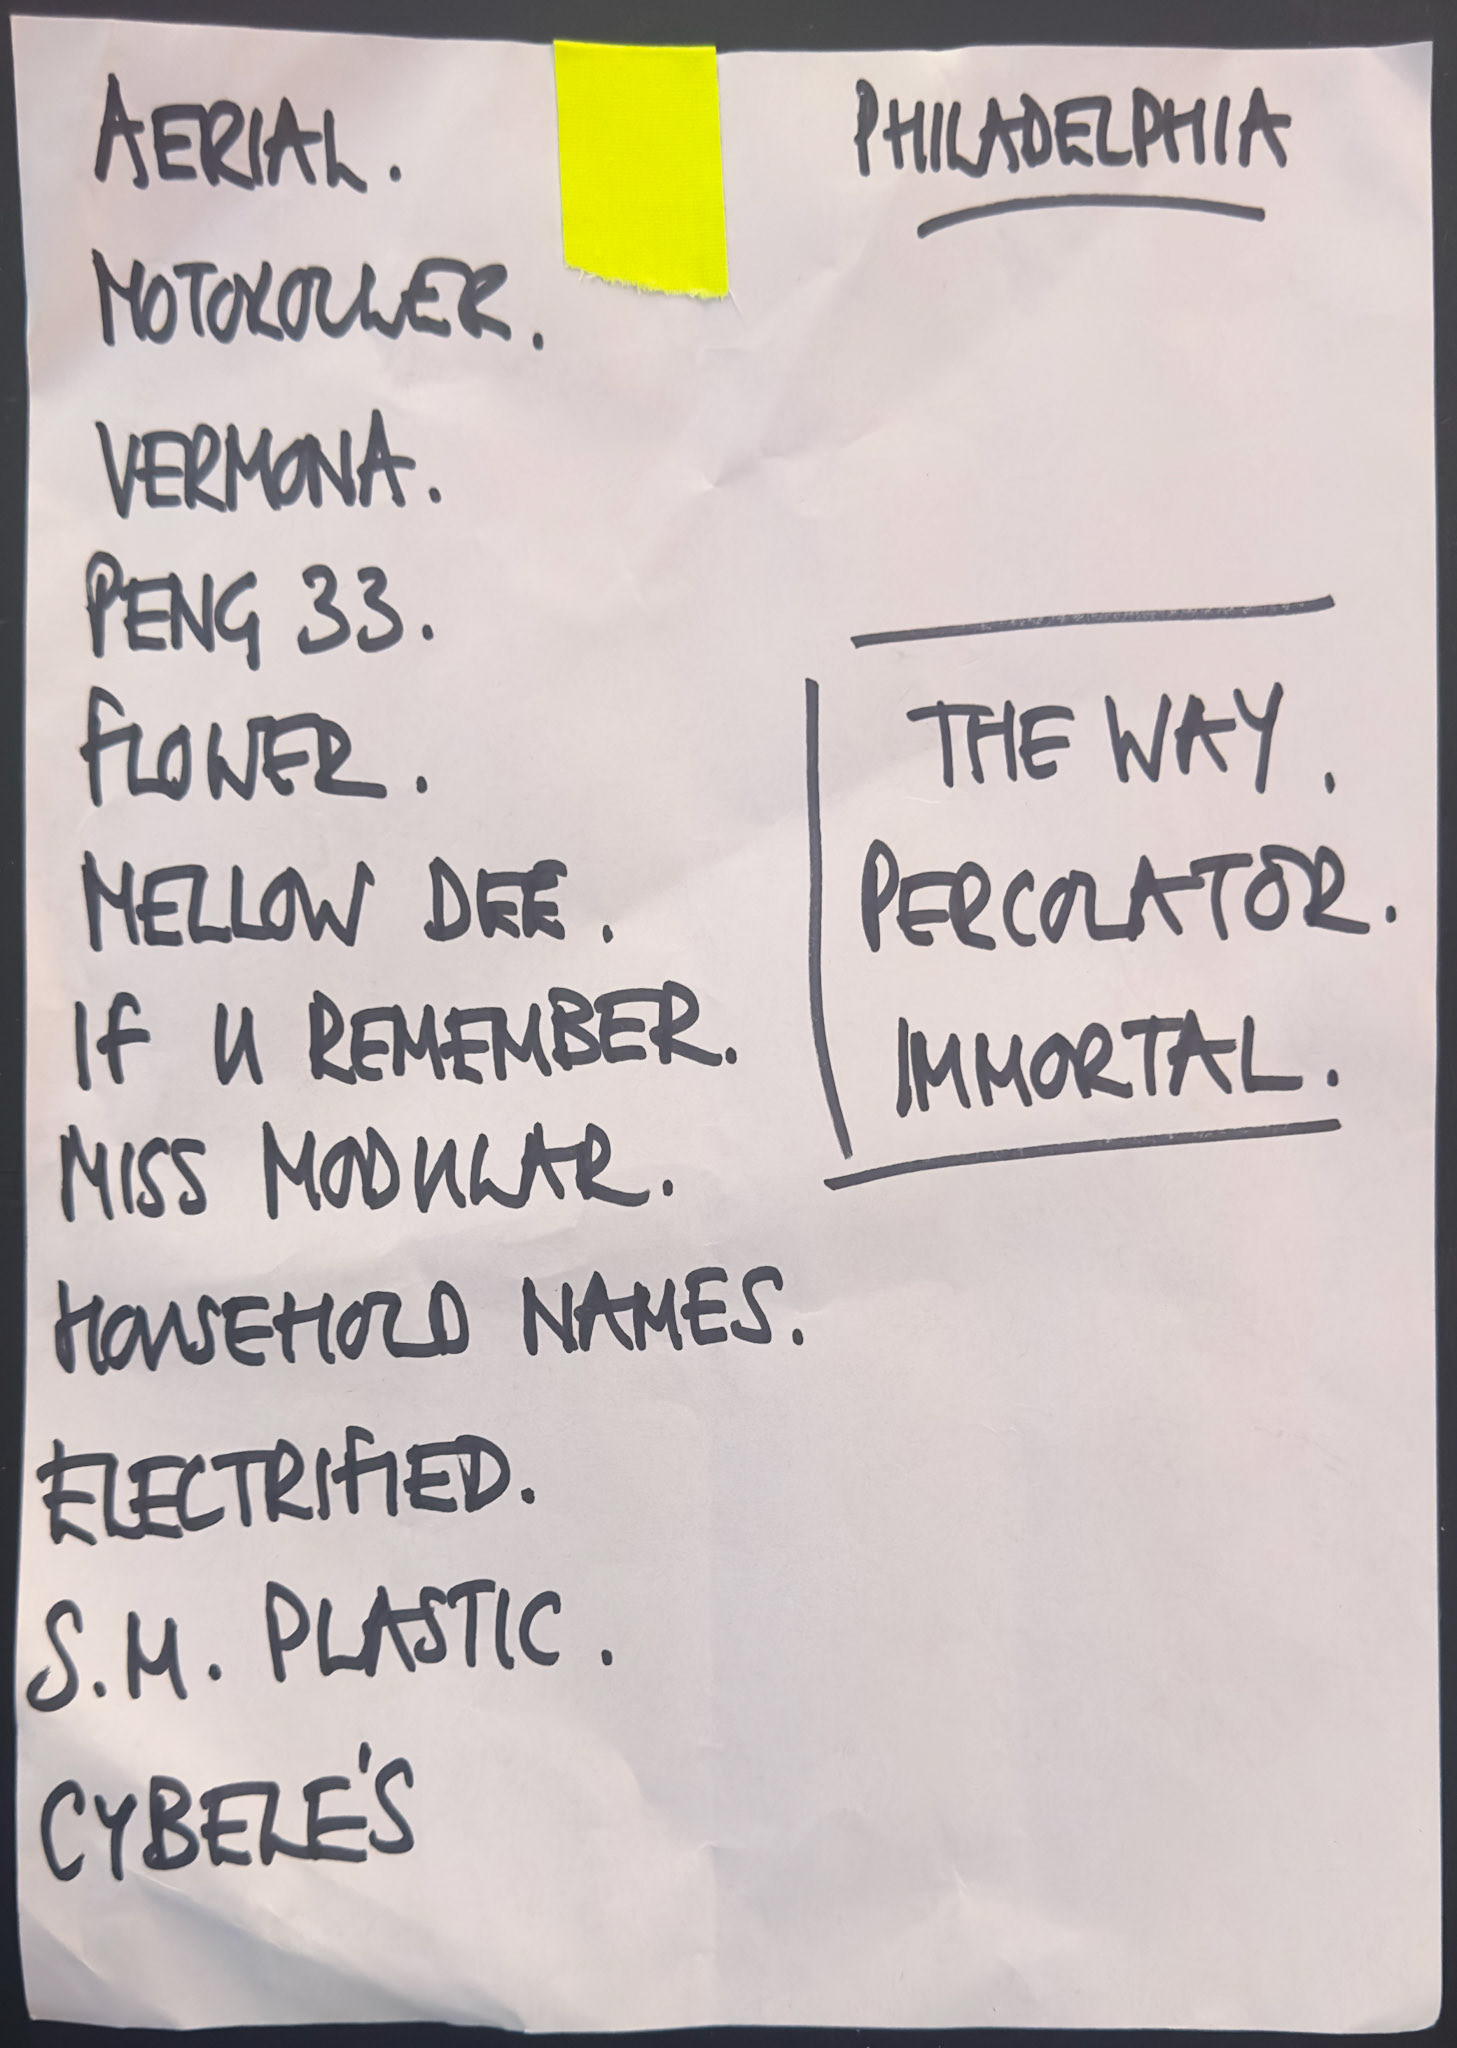 AERIAL.
MOTOROLLER.
VERMONA.
PENG 33.
FLOWER.
MELLOW DEE.
IF U REMEMBER.
MISS MODULAR.
HOUSEHOLD NAMES.
ELECTRIFIED.
S.M. PLASTIC.
CYBELE'S
PHILADELPHIA
THE WAY.
PERCOLATOR.
IMMORTAL.